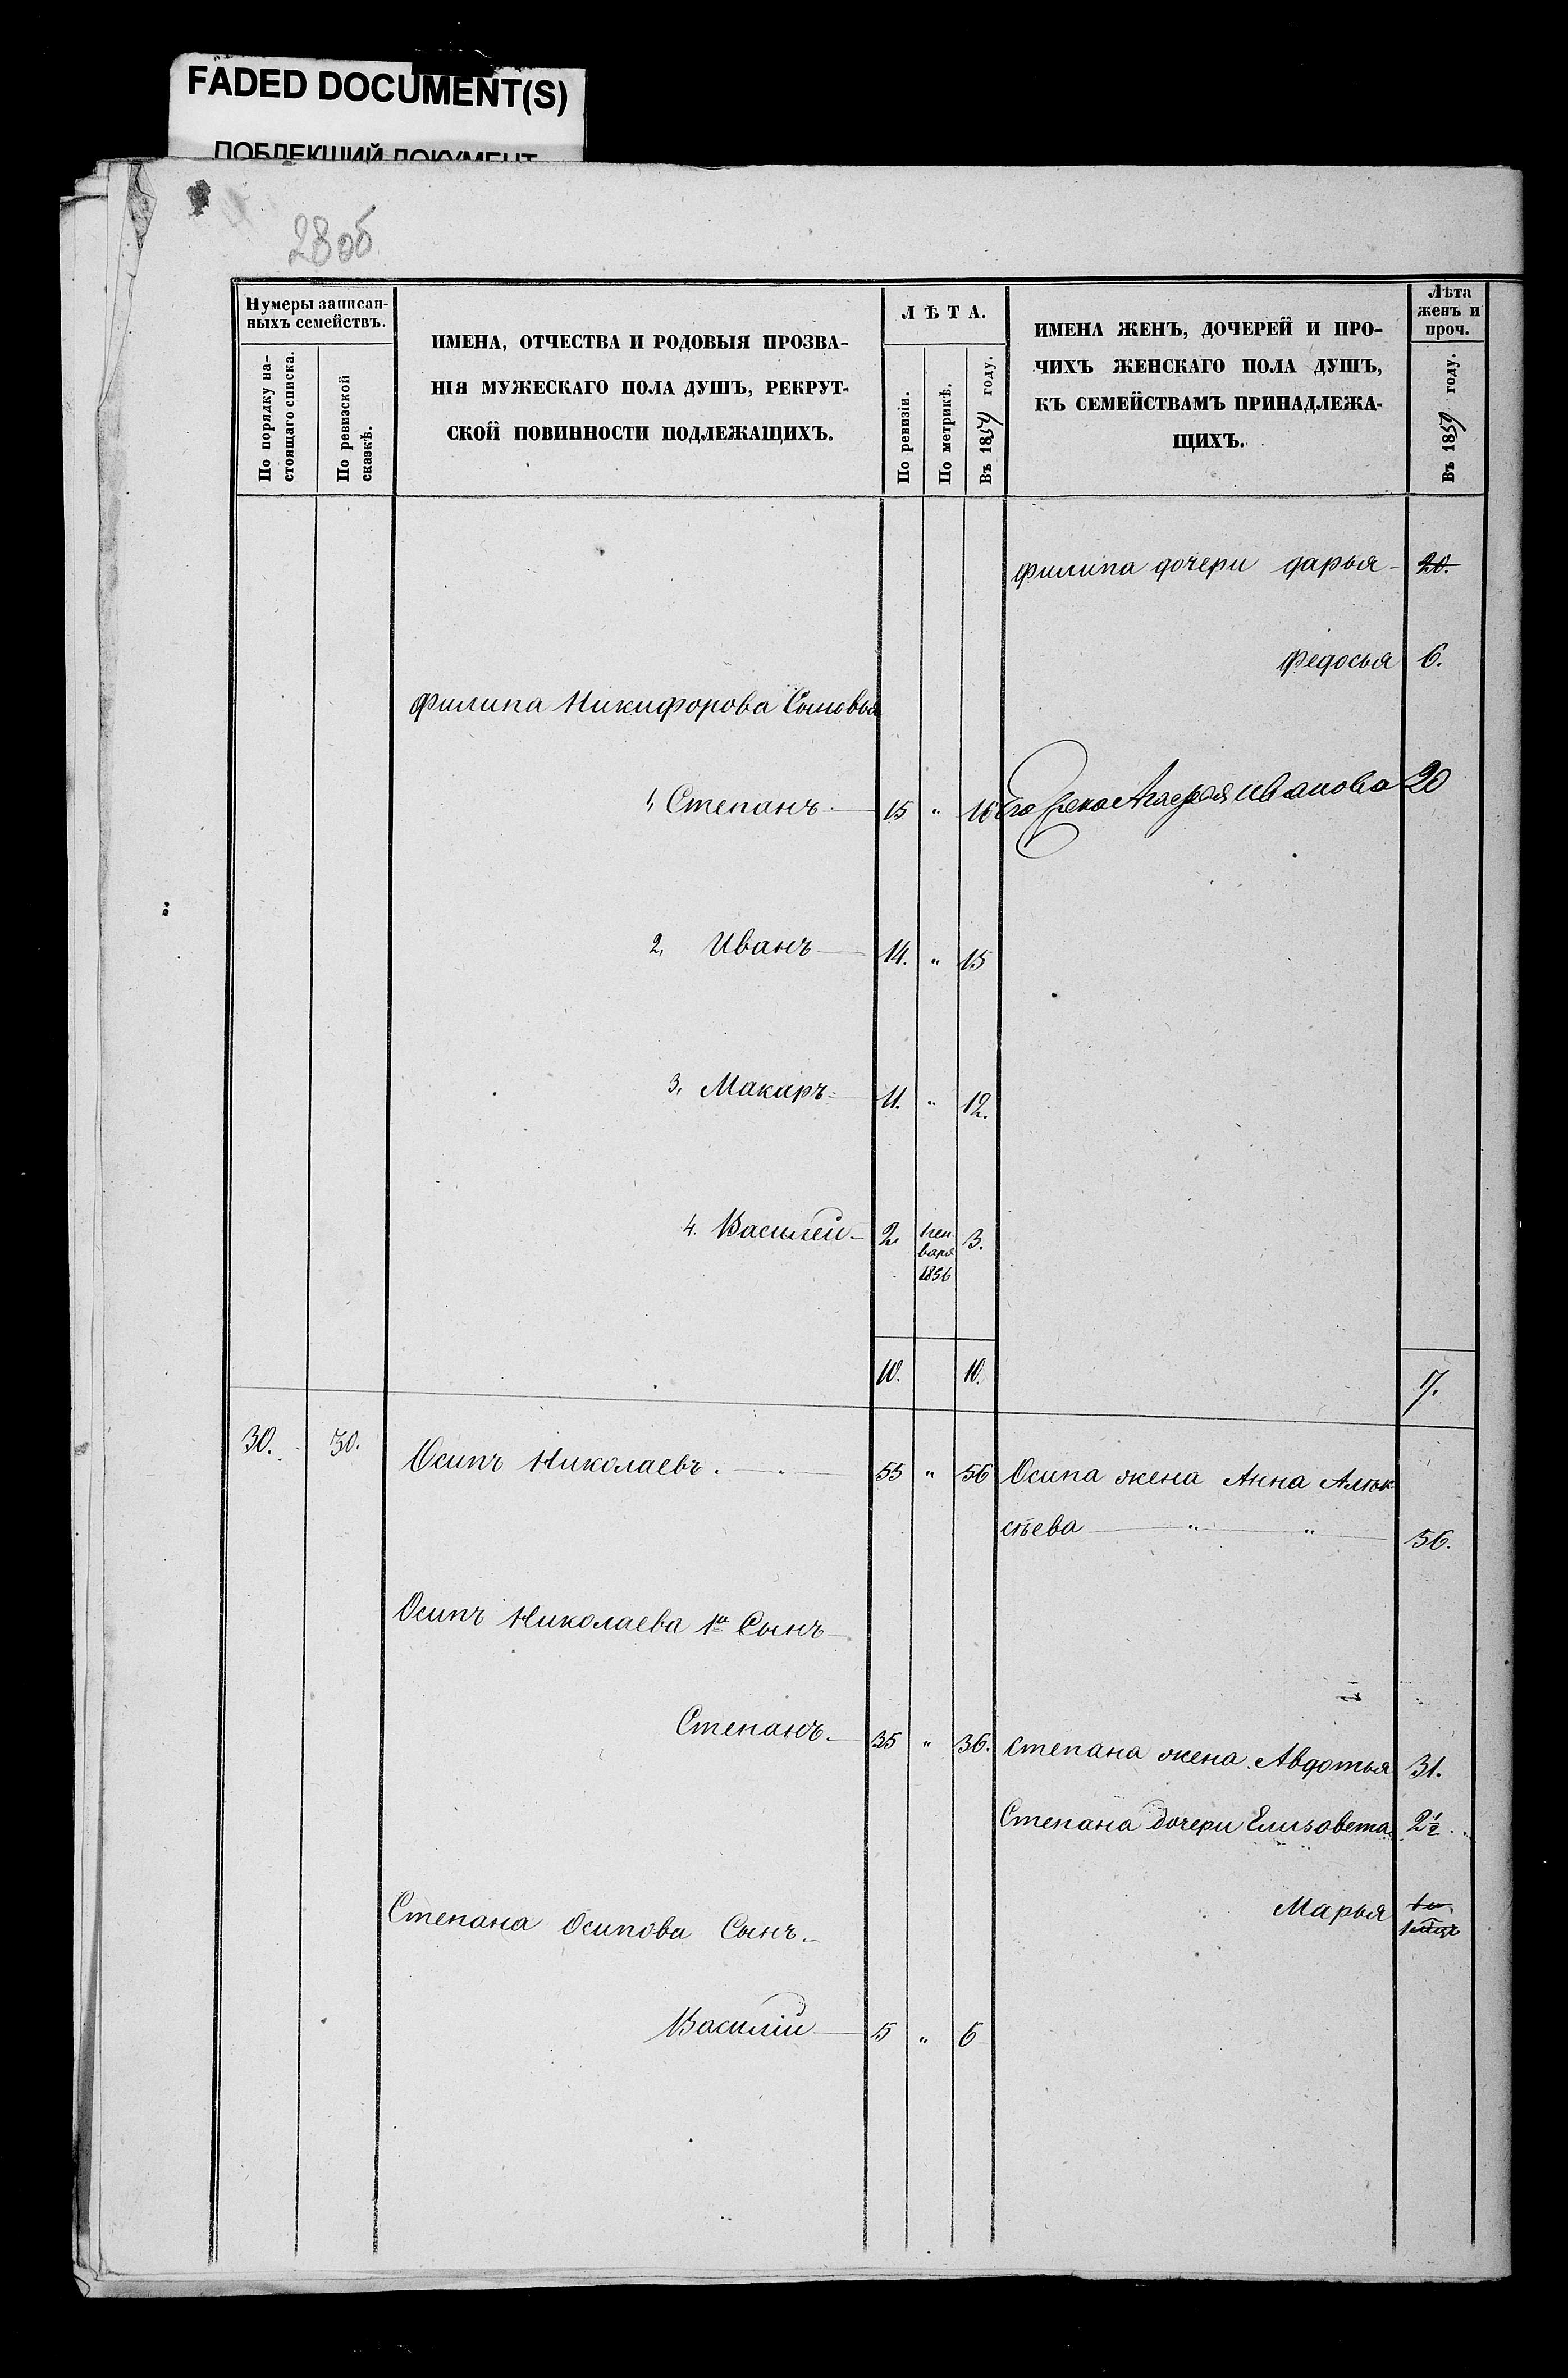 FADED DOCUMENT(S)
ПОБЛЕКШИЙ ДОКУМЕНТ
28об
Нумеры записан-
ныхъ семействъ.
По порядку на-
стоящаго списка.
По ревизской
сказкѣ.
ИМЕНА, ОТЧЕСТВА И РОДОВЫЯ ПРОЗВА-
НІЯ МУЖЕСКАГО ПОЛА ДУШЪ, РЕКРУТ-
СКОЙ ПОВИННОСТИ ПОДЛЕЖАЩИХЪ.
ЛѢТА.
По ревизіи.
По метрикѣ.
Въ 1859 году.
ИМЕНА ЖЕНЪ, ДОЧЕРЕЙ И ПРО-
ЧИХЪ ЖЕНСКАГО ПОЛА ДУШЪ,
КЪ СЕМЕЙСТВАМЪ ПРИНАДЛЕЖА-
ЩИХЪ.
Лѣта
женъ и
проч.
Въ 1859 году.
Филипа дочери дарья - 20.
Федосья 6.
Филипа Никифорова Сыновья
1, Степанъ 15 " 16 Его жена Агафья Иванова 20
2, Иванъ 14. " 15
3, Макаръ 11. " 12.
4. Василей 2 Ген
варя
1856 3.
10. 10. 17.
30. 30. Осипъ Николаевъ. 55 " 56 Осипа жена Анна Алек
сѣева " " 56.
Осипъ Николаева 1й Сынъ
Степанъ. 35 " 36. Степана жена Авдотья 31.
Степана дочери Елизовета 2 1/2
Марья
Степана Осипова Сынъ.
Василій 5 " 6